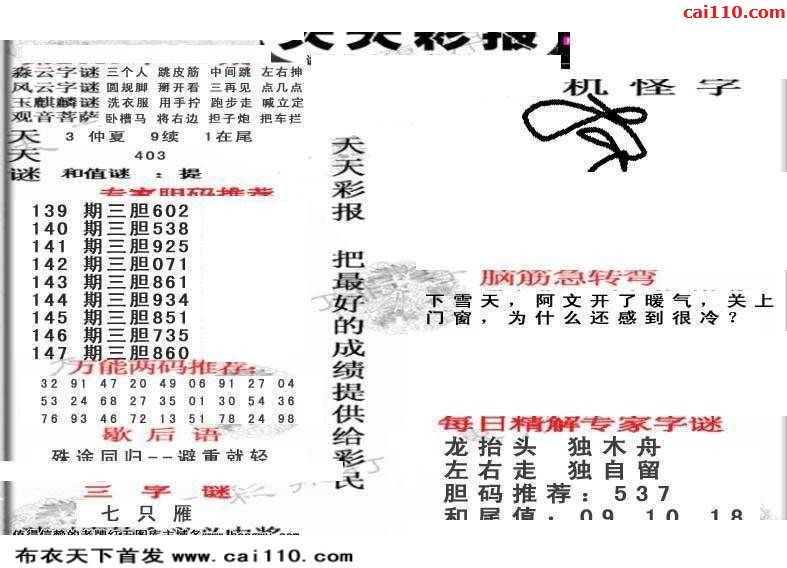 cai110.com
天天彩报
机怪字
森云字谜 三个人 跳皮筋 中间跳 左右抻
风云字谜 圆规脚 掰开看 三再见 点几点
玉麒麟谜 洗衣服 用手拧 跑步走 喊立定
观音菩萨 卧槽马 将右边 担子炮 把车拦
天 3 仲夏 9续 1在尾
天 403
谜 和值谜 :提
专家胆码推荐
139 期三胆602
140 期三胆538
141 期三胆925
142 期三胆071
143 期三胆861
144 期三胆934
145 期三胆851
146 期三胆735
147 期三胆860
万能两码推荐:
32 91 47 20 49 06 91 27 04
53 24 68 27 35 01 30 54 36
76 93 46 72 13 51 78 24 98
歇后语
殊途同归--避重就轻
三字谜
七只雁
天天彩报 把最好的成绩提供给彩民
脑筋急转弯
下雪天，阿文开了暖气，关上
门窗，为什么还感到很冷？
每日精解专家字谜
龙抬头 独木舟
左右走 独自留
胆码推荐：537
和尾值：09 10 18
布衣天下首发 www.cai110.com